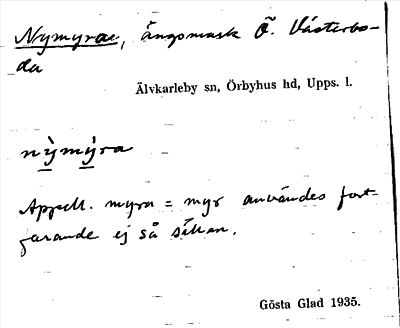 Nymyrae, ängsmark Ö. Västerbo-
da
Älvkarleby sn, Örbyhus hd, Upps. l.
nỳ̱mỳ̱ra
Appell. myra = myr användes fort-
farande ej så sällan.
Gösta Glad 1935.